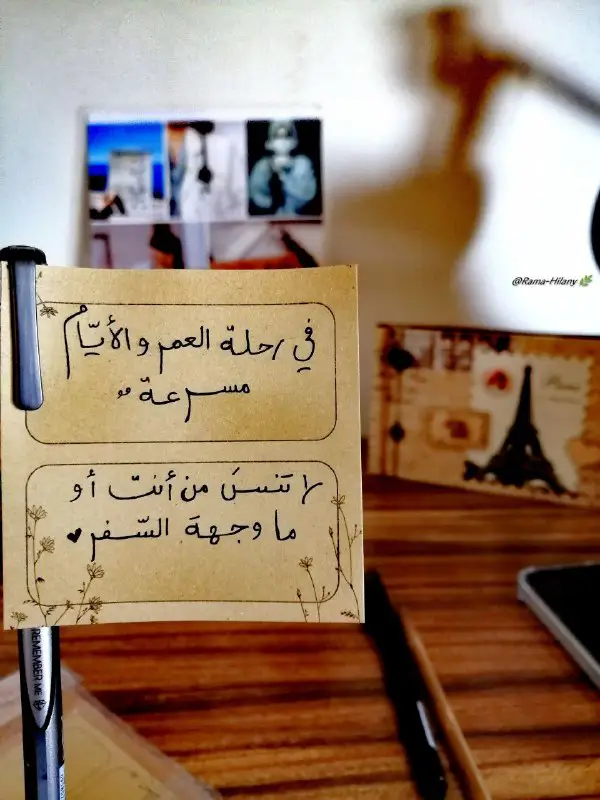 @Rama-Hilany
في رحلة العمر والأيّام
مسرعة
لا تنسَ من أنت أو
ما وجهةَ السّفر
REMEMBER ME